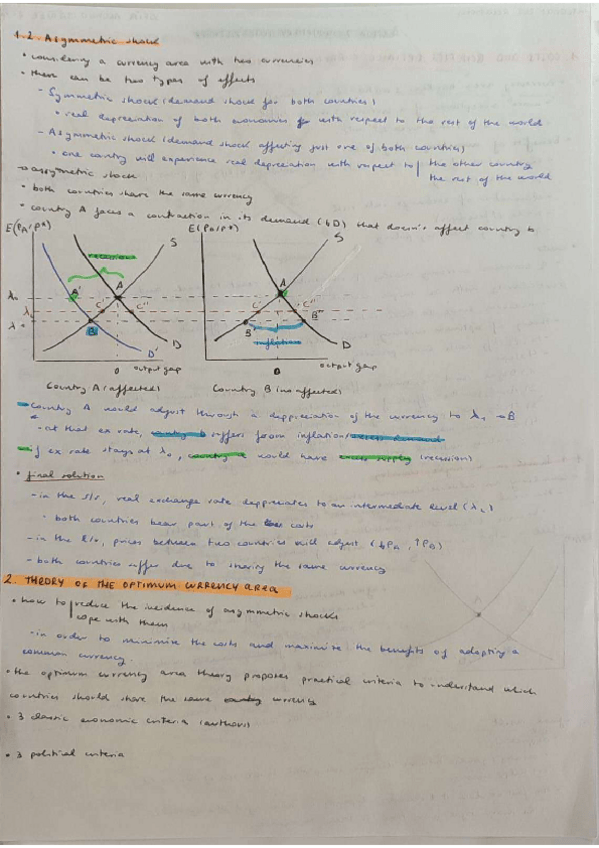 1.2. Asymmetric shock
• considering a currency area with two currencies
• there can be two types of effects
- Symmetric shock (demand shock for both countries)
• real depreciation of both economies with respect to the rest of the world
- Asymmetric shock (demand shock affecting just one of both countries)
• one country will experience real depreciation with respect to | the other country
the rest of the world
→ asymmetric shock
• both countries share the same currency
• country A faces a contraction in its demand (↓D) that doesn't affect country B
E(PA/P*)
E(PB/P*)
recession
S
S
A'
A
A
λ0
C'
C''
C'
C''
λ
B
B'
B''
λ
inflation
D'
D
D
0
output gap
0
output gap
Country A (affected)
Country B (no affected)
Country A would adjust through a deppreciation of the currency to λ1 → B
- at that ex rate, country B suffers from inflation/excess demand
- if ex rate stays at λ0, country A would have excess supply (recession)
• final solution
- in the S/r, real exchange rate deppreciates to an intermediate level (λ2)
• both countries bear part of the costs
- in the L/r, prices between two countries will adjust (↓PA, ↑PB)
- both countries suffer due to sharing the same currency
2. THEORY OF THE OPTIMUM CURRENCY AREA
• how to | reduce the incidence of asymmetric shocks
cope with them
- in order to minimise the costs and maximize the benefits of adopting a
common currency.
• the optimum currency area theory proposes practical criteria to understand which
countries should share the same currency
• 3 classic economic criteria (authors)
• 3 political criteria